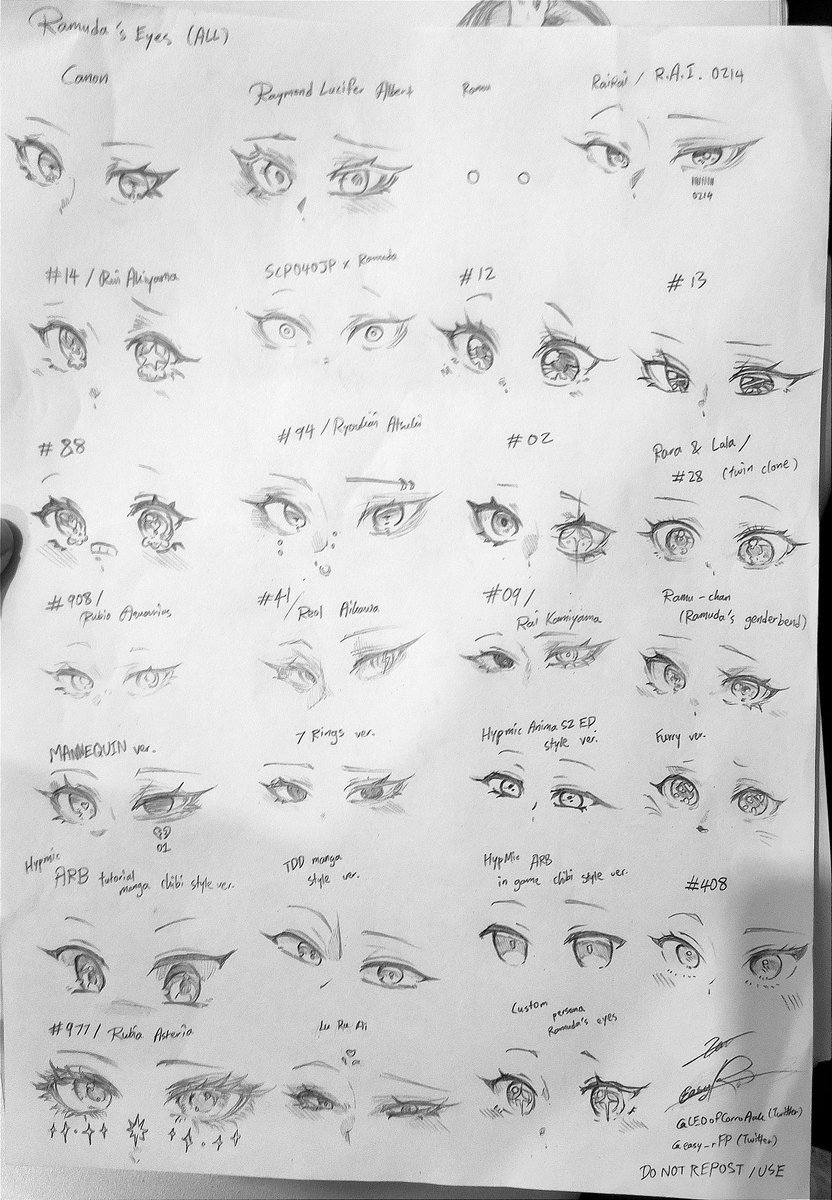 Ramuda's Eyes (ALL)
Canon
Raymond Lucifer Albert
Ramu
RaiRai / R.A.I. 0214
0214
#14 / Rei Akiyama
SCP040JP x Ramuda
#12
#13
#88
#94 /
#02
Rara & Lala /
#28 (twin clone)
#908 /
Rubio Aquarius
#41 /
Real Aikawa
#09 /
Rai Kamiyama
Ramu-chan
(Ramuda's genderbend)
MANNEQUIN ver.
7 Rings ver.
Hypmic Anima S2 ED
style ver.
Furry ver.
01
Hypmic
ARB tutorial
manga chibi style ver.
TDD manga
style ver.
HypMic ARB
in game chibi style ver.
#408
#977 / Rubia Asteria
Lu Ru Ai
Custom persona
Ramuda's eyes
@easy_rFP (Twitter)
DO NOT REPOST / USE